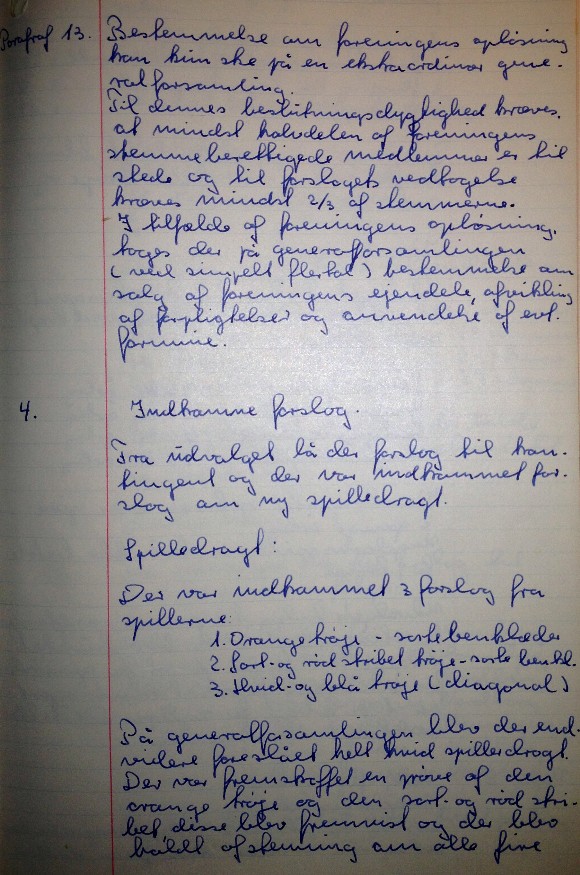 Paragraf 13. Bestemmelse om foreningens opløsning
kan kun ske på en ekstraordinær gene-
ralforsamling.
Til dennes beslutningsdygtighed kræves,
at mindst halvdelen af foreningens
stemmeberettigede medlemmer er til
stede og til forslagets vedtagelse
kræves mindst 2/3 af stemmerne.
I tilfælde af foreningens opløsning,
tages der på generalforsamlingen
(ved simpelt flertal) bestemmelse om
salg af foreningens ejendele, afvikling
af forpligtelser og anvendelse af evt.
formue.
4. Indkomne forslag.
Fra udvalget lå der forslag til kon-
tingent og der var indkommet for-
slag om ny spilledragt.
Spilledragt:
Der var indkommet 3 forslag fra
spillerne:
1. Orange trøje - sorte benklæder
2. Sort- og rød stribet trøje - sorte benkl.
3. Hvid- og blå trøje (diagonal)
På generalforsamlingen blev der end-
videre foreslået helt hvid spillerdragt.
Der var fremskaffet en prøve af den
orange trøje og den sort- og rød stri-
bet disse blev fremvist og der blev
holdt afstemning om alle fire